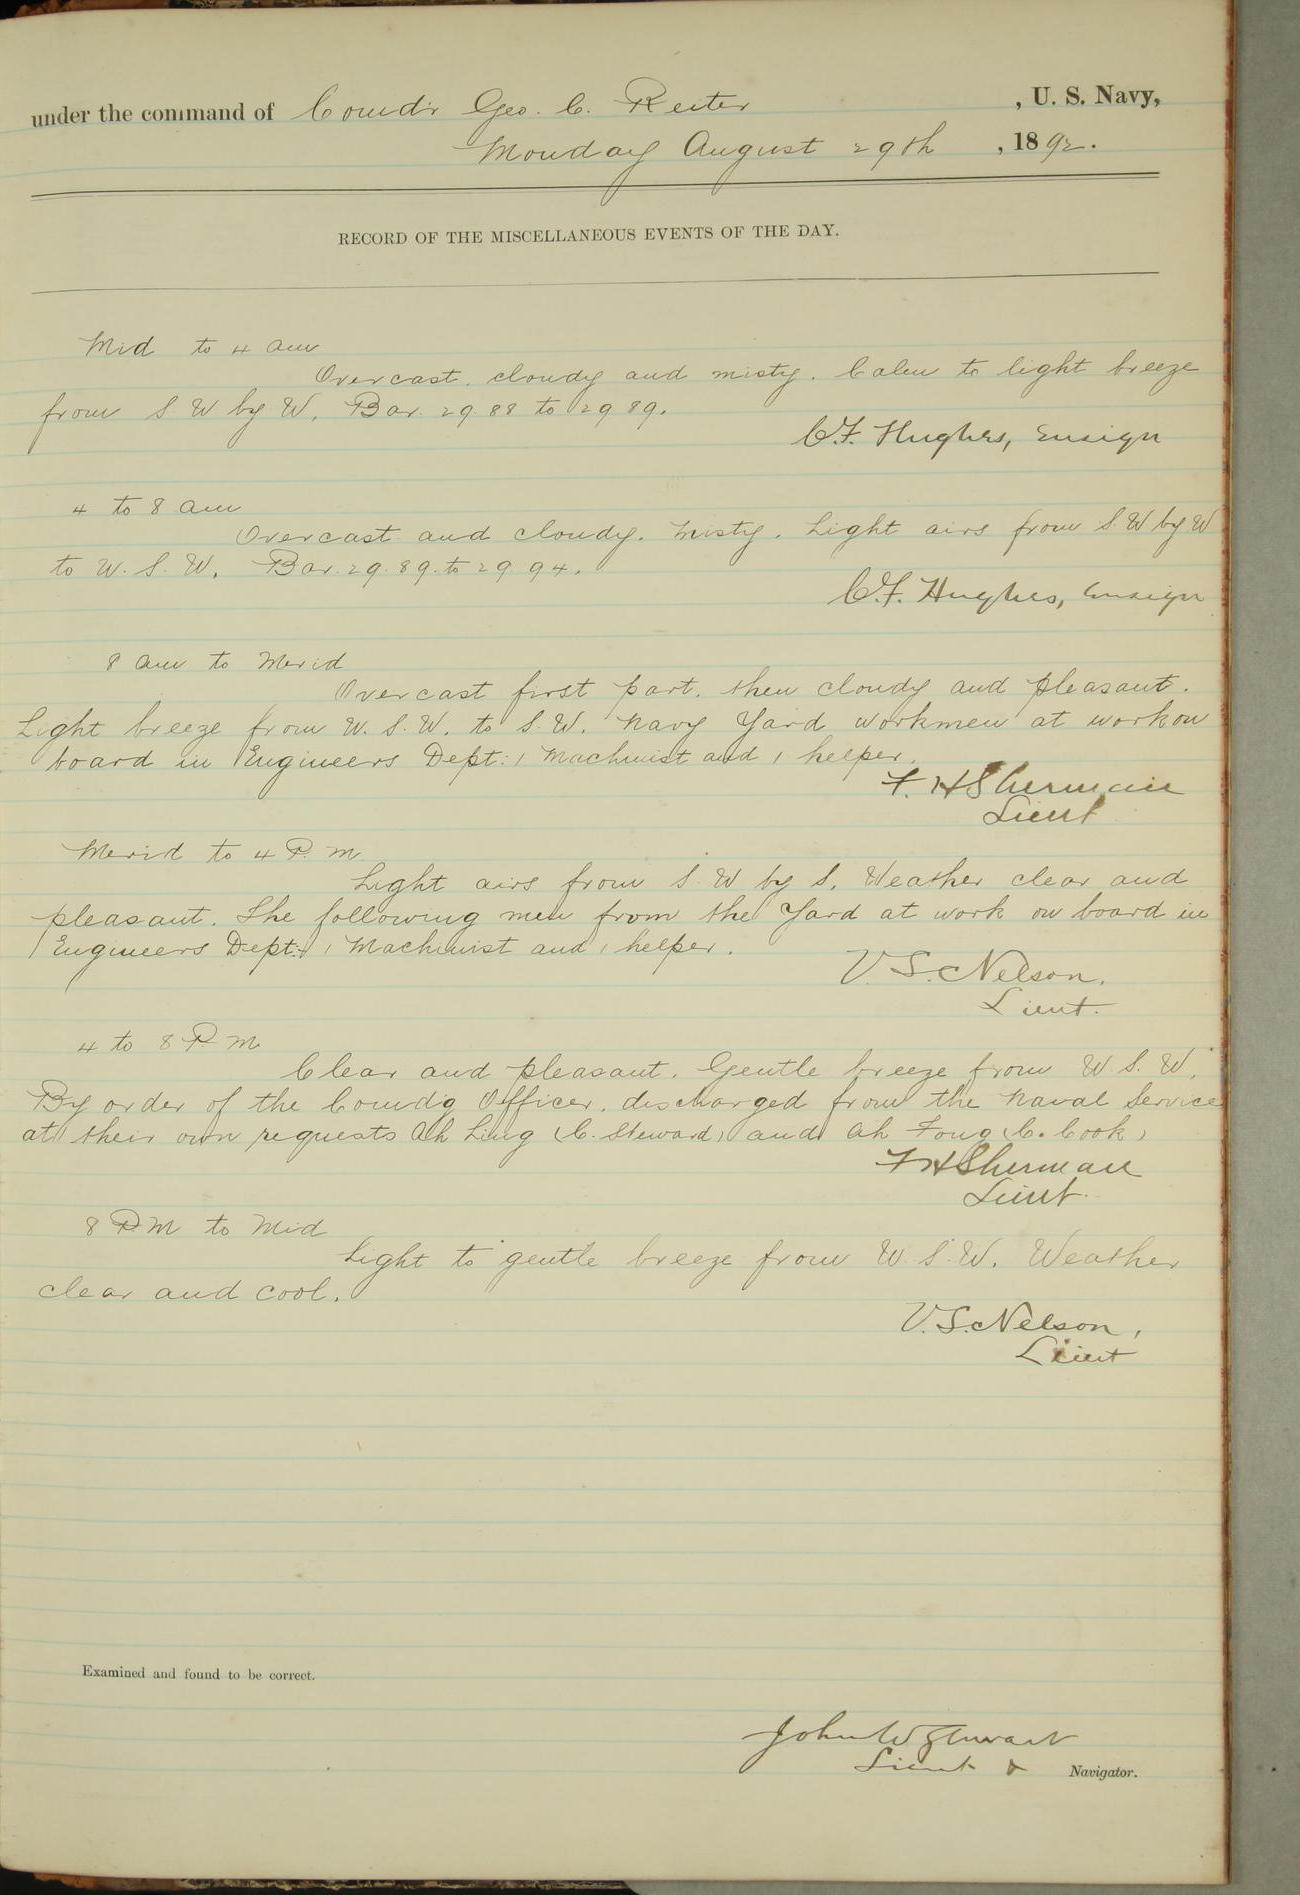 under the command of Comdr Geo. C. Reiter , U. S. Navy,
Monday August 29th , 1892.
RECORD OF THE MISCELLANEOUS EVENTS OF THE DAY.
Mid to 4 am
Overcast. cloudy and misty. Calm to light breeze
from S W by W. Bar. 29.88 to 29.89.
C.F. Hughes, Ensign
4 to 8 am
Overcast and cloudy. Misty. Light airs from S.W by W
to W. S. W. Bar. 29.89. to 29.94.
C.F. Hughes, Ensign
8 am to Merid
Overcast first part. then cloudy and pleasant.
Light breeze from W. S. W. to S. W. Navy Yard workmen at work on
board in Engineers Dept: 1 Machinist and 1 helper.
F. H Sherman
Lieut
Merid to 4 P. M
Light airs from S. W by S. Weather clear and
pleasant. The following men from the Yard at work on board in
Engineers Dept: 1 Machinist and 1 helper.
V. S. Nelson.
Lieut.
4 to 8 P. M.
Clear and pleasant. Gentle breeze from W. S. W.
By order of the Comdg Officer. discharged from the Naval Service
at their own requests Ah Ling (C. Steward) and Ah Fong (C. Cook)
F H Sherman
Lieut.
8 P. M to Mid
Light to gentle breeze from W. S. W. Weather
clear and cool.
V. S. Nelson,
Lieut
Examined and found to be correct.
John W Stewart
Lieut & Navigator.